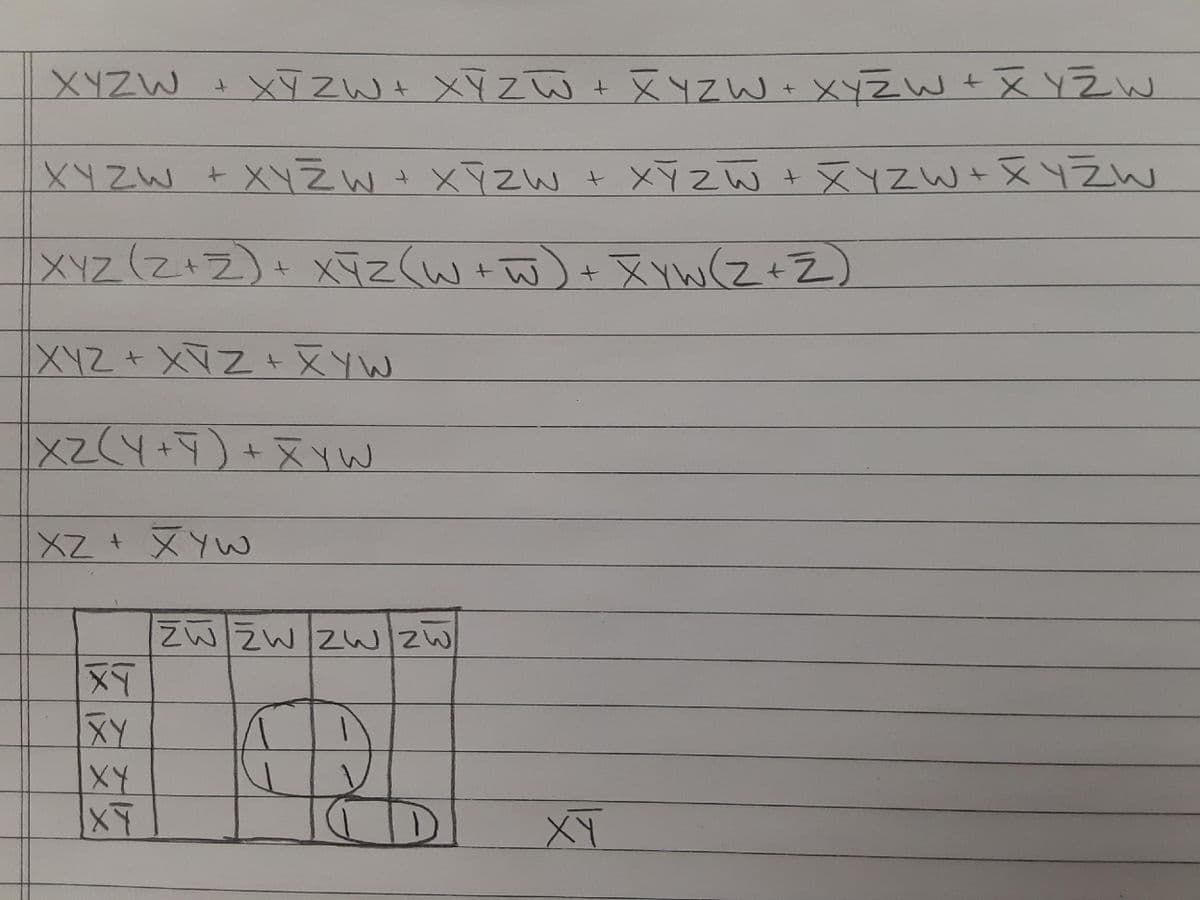 XYZW + XY̅ZW + XY̅ZW̅ + X̅YZW + XYZ̅W + X̅YZ̅W
XYZW + XYZ̅W + XY̅ZW + XY̅ZW̅ + X̅YZW + X̅YZ̅W
XYZ(Z+Z̅) + XY̅Z(W+W̅) + X̅YW(Z+Z̅)
XYZ + XY̅Z + X̅YW
XZ(Y+Y̅) + X̅YW
XZ + X̅YW
Z̅W̅ Z̅W ZW ZW̅
X̅Y̅
X̅Y 1 1
XY 1 1
XY̅ 1 1 XY̅